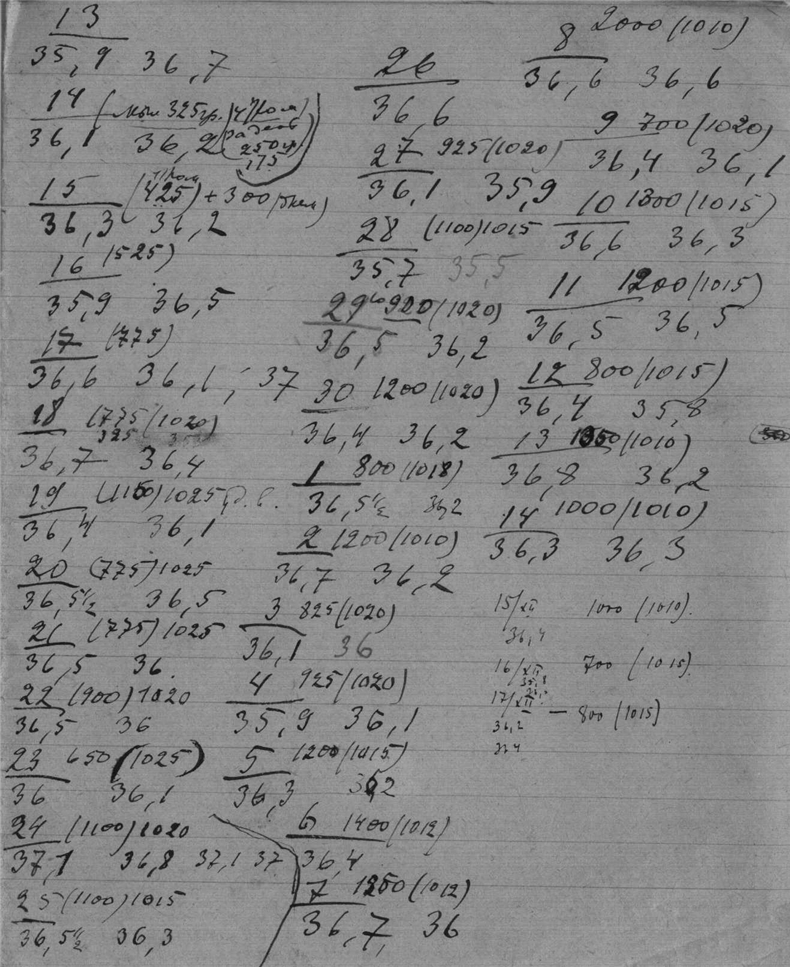 13
35,9 36,7
14 (моч 325гр.
36,1 36,2
250гр
175
15 (425) + 300
36,3 36,2
16 (525)
35,9 36,5
17 (775)
36,6 36,1; 37
18 (775 (1020)
325
36,7 36,4
19 (1150) 1025
36,4 36,1
20 (775) 1025
36,5½ 36,5
21 (775) 1025
36,5 36
22 (900) 1020
36,5 36
23 650 (1025)
36 36,1
24 (1100) 1020
37,1 36,8 37,1 37
25 (1100) 1015
36,5½ 36,3
26
36,6
27 925 (1020)
36,1 35,9
28 (1100) 1015
35,7 35,5
29 920 (1020)
36,5 36,2
30 1200 (1020)
36,4 36,2
1 800 (1018)
36,5½ 36,2
2 1200 (1010)
36,7 36,2
3 825 (1020)
36,1 36
4 925 (1020)
35,9 36,1
5 1200 (1015)
36,3 36,2
6 1400 (1012)
36,4
7 1250 (1012)
36,7, 36
8 2000 (1010)
36,6 36,6
9 700 (1020)
36,4 36,1
10 1300 (1015)
36,6 36,3
11 1200 (1015)
36,5 36,5
12 800 (1015)
36,4 35,8
13 1350 (1010)
36,8 36,2
14 1000 (1010)
36,3 36,3
15/XII 1000 (1010).
36,4
16/XII 700 (1015)
35,8
17/XII — 800 (1015)
36,2